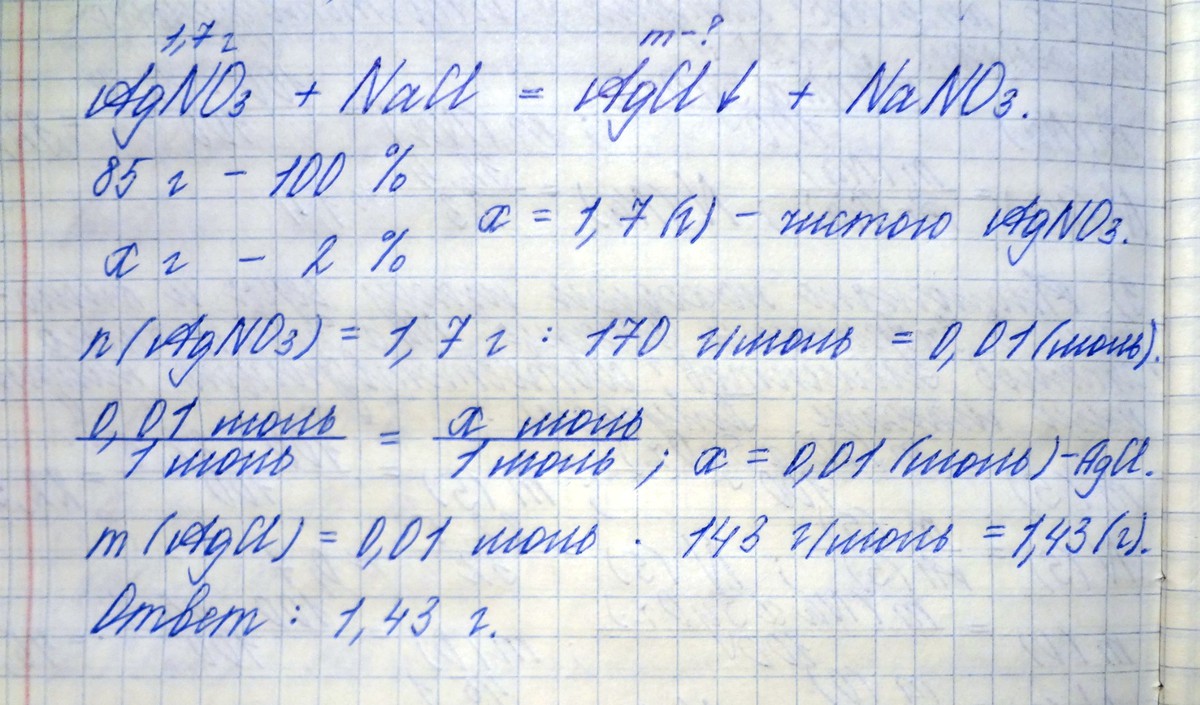 1,7 г m-?
AgNO₃ + NaCl = AgCl↓ + NaNO₃.
85 г - 100 %
x = 1,7 (г) - чистого AgNO₃.
x г - 2 %
n(AgNO₃) = 1,7 г : 170 г/моль = 0,01 (моль).
0,01 моль / 1 моль = x моль / 1 моль ; x = 0,01 (моль) - AgCl.
m (AgCl) = 0,01 моль · 143 г/моль = 1,43 (г).
Ответ : 1,43 г.